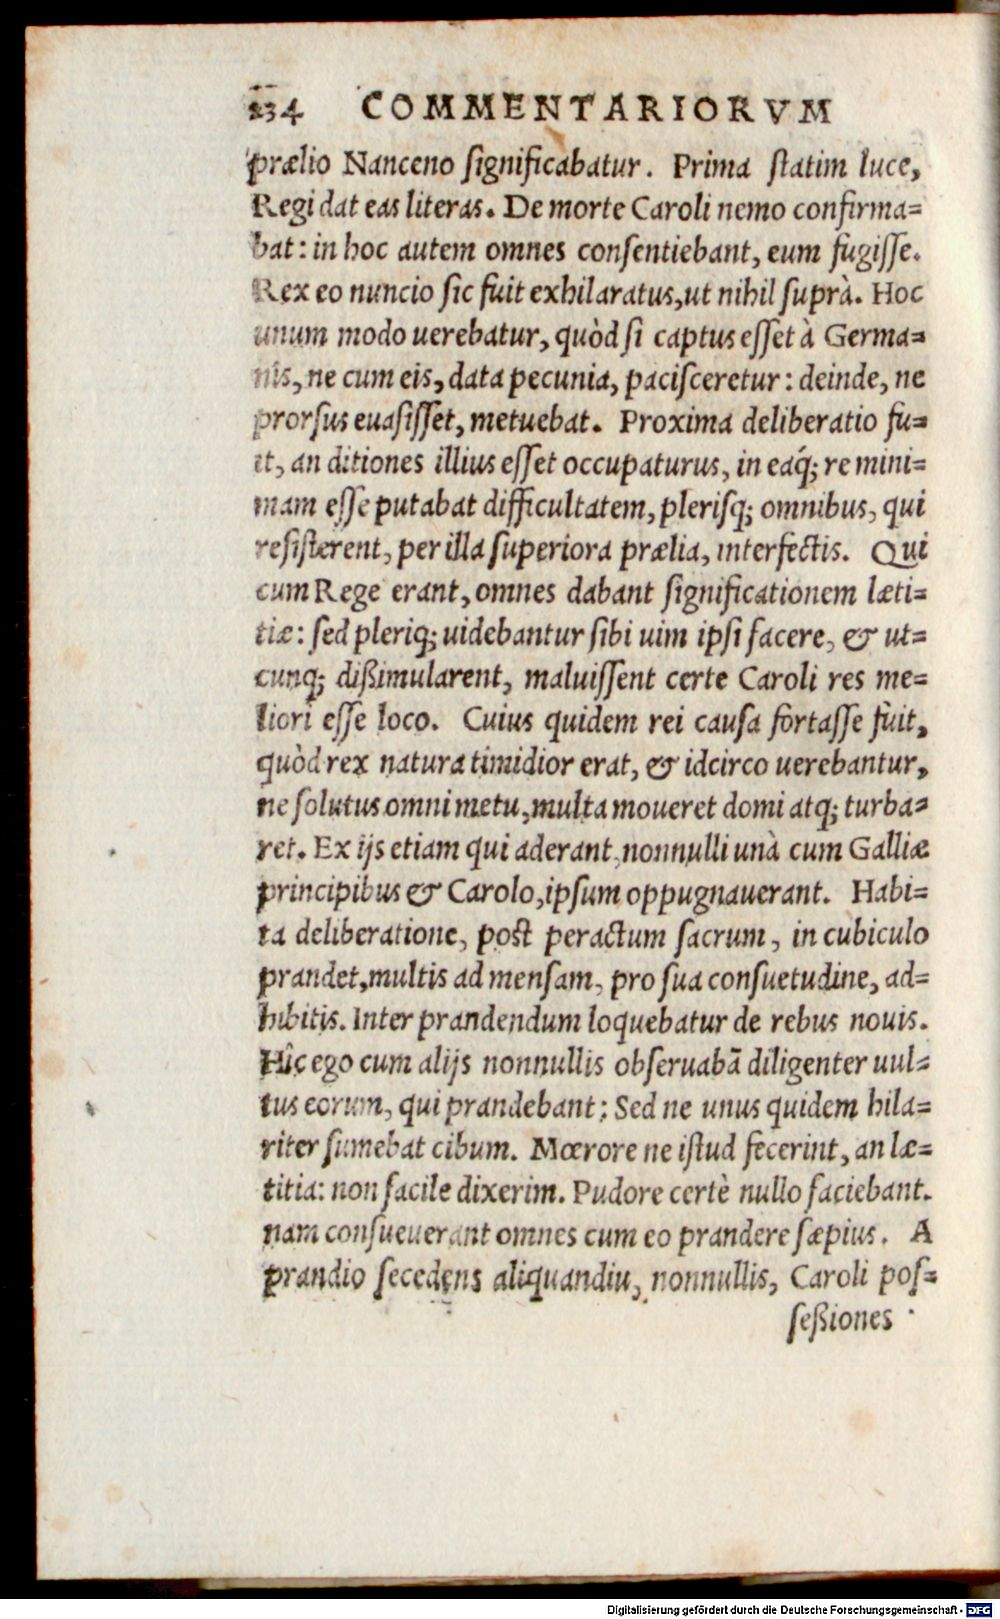 234 COMMENTARIORVM
prælio Nanceno ſignificabatur. Prima ſtatim luce,
Regi dat eas literas. De morte Caroli nemo confirma=
bat: in hoc autem omnes conſentiebant, eum fugiſſe.
Rex eo nuncio ſic fuit exhilaratus, ut nihil ſuprà. Hoc
unum modo uerebatur, quòd ſi captus eſſet à Germa=
nis, ne cum eis, data pecunia, paciſceretur: deinde, ne
prorſus euaſiſſet, metuebat. Proxima deliberatio fu=
it, an ditiones illius eſſet occupaturus, in eaq́; re mini=
mam eſſe putabat difficultatem, pleriſq; omnibus, qui
reſiſterent, per illa ſuperiora prælia, interfectis. Qui
cum Rege erant, omnes dabant ſignificationem læti=
tiæ: ſed pleriq; uidebantur ſibi uim ipſi facere, & ut=
cunq; dißimularent, maluiſſent certe Caroli res me=
liori eſſe loco. Cuius quidem rei cauſa fortaſſe fuit,
quòd rex natura timidior erat, & idcirco uerebantur,
ne ſolutus omni metu, multa moueret domi atq; turba=
ret. Ex ijs etiam qui aderant, nonnulli unà cum Galliæ
principibus & Carolo, ipſum oppugnauerant. Habi=
ta deliberatione, poſt peractum ſacrum, in cubiculo
prandet, multis ad menſam, pro ſua conſuetudine, ad=
hibitis. Inter prandendum loquebatur de rebus nouis.
Hîc ego cum alijs nonnullis obſeruabã diligenter uul=
tus eorum, qui prandebant: Sed ne unus quidem hila=
riter ſumebat cibum. Mœrore ne iſtud fecerint, an læ=
titia: non facile dixerim. Pudore certè nullo faciebant.
nam conſueuerant omnes cum eo prandere ſæpius. A
prandio ſecedens aliquandiu, nonnullis, Caroli poſ=
ſeßiones
Digitalisierung gefördert durch die Deutsche Forschungsgemeinschaft - DFG